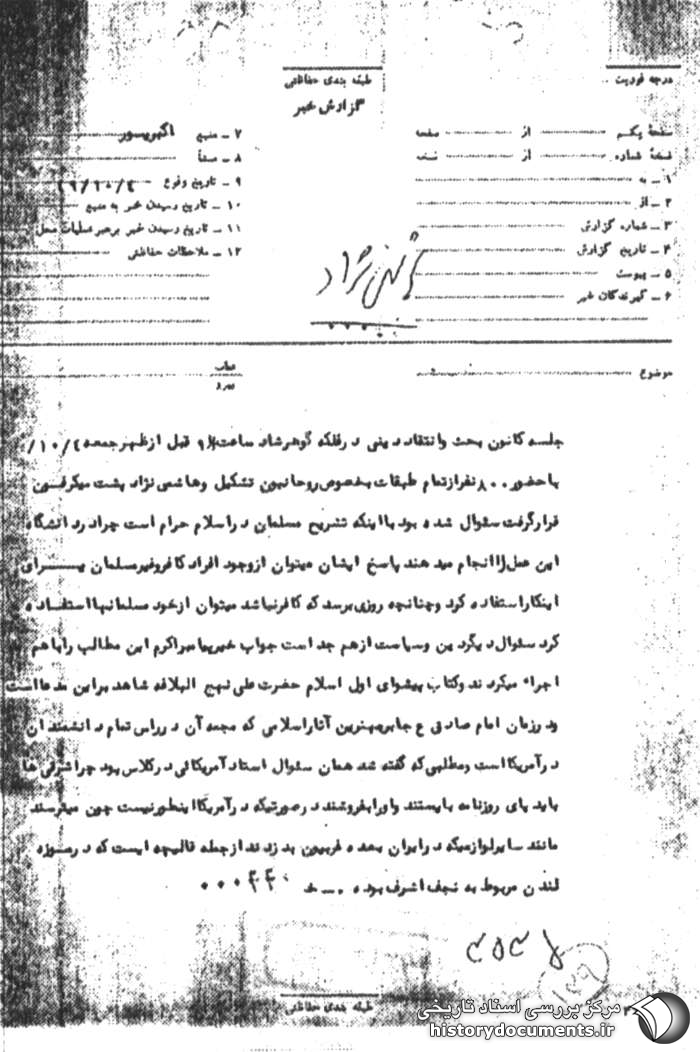 درجه فوریت
طبقه بندی حفاظتی
گزارش خبر
صفحه یکم از صفحه
نسخه شماره از نسخه
۱ ـ به
۲ ـ از
۳ ـ شماره گزارش
۴ ـ تاریخ گزارش
۵ ـ پیوست
۶ ـ گیرندگان خبر
۷ ـ منبع اکبرپور
۸ ـ منشأ
۹ ـ تاریخ وقوع
۱۰ ـ تاریخ رسیدن خبر به منبع
۱۱ ـ تاریخ رسیدن خبر برهبر عملیات محل
۱۲ ـ ملاحظات حفاظتی
هاشمی نژاد
موضوع
جلسه کانون بحث وانتقاد دینی در فلکه گوهرشاد ساعت ۹ قبل از ظهر جمعه ۱۰/٤/
با حضور ۸۰۰ نفر از تمام طبقات بخصوص روحانیون تشکیل وهاشمی نژاد پشت میکرفون
قرارگرفت سئوال شده بود بااینکه تشریح مسلمان در اسلام حرام است چرا در دانشگاه
این عمل را انجام میدهند پاسخ ایشان میتوان از وجود افراد کافر وغیرمسلمان بــرای
اینکار استفاده کرد وچنانچه روزی برسد که کافر نباشد میتوان از خود مسلمانها استفاده
کرد سئوال دیگر دین وسیاست از هم جد است جواب خیر پیامبر اکرم این مطالب را باهم
اجراء میکردند وکتاب پیشوای اول اسلام حضرت علی نهج البلاغه شاهد براین مدعااست
ودر زمان امام صادق ع جابر بهترین آثار اسلامی که مجمعه آن در راس تمام دانشمندان
در آمریکااست ومطلبی که گفته شد همان سئوال استاد آمریکائی در کلاس بود چرا شرقی ها
باید پای روزنامه بایستند واورا بفروشند در صورتیکه در آمریکا اینطور نیست چون میترسند
مانند سایر لوازمیکه در ایران بعده غربیون بدزدند از جمله قالیچه ایست که در مــوزه
لندن مربوط به نجف اشرف بوده
طبقه بندی حفاظتی
مرکز بررسی اسناد تاریخی
historydocuments.ir